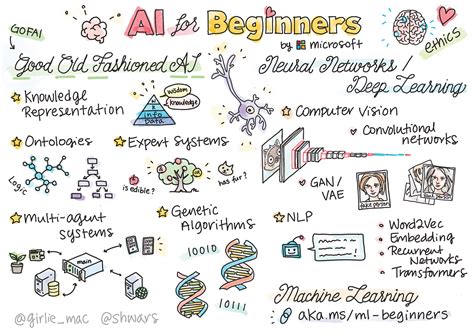 AI for Beginners
by Microsoft
GOFAI
ethics
Good Old Fashioned AI
Knowledge
Representation
Wisdom
Knowledge
info
Data
Ontologies
Logic
Expert Systems
is edible?
has fur?
Multi-agent
systems
main
Genetic
Algorithms
10010
10111
Neural Networks /
Deep Learning
Computer Vision
Convolutional
networks
GAN/
VAE
fake person
NLP
Word2Vec
Embedding
Recurrent
Networks
Transformers
Machine Learning
aka.ms/ml-beginners
@girlie_mac @shwars